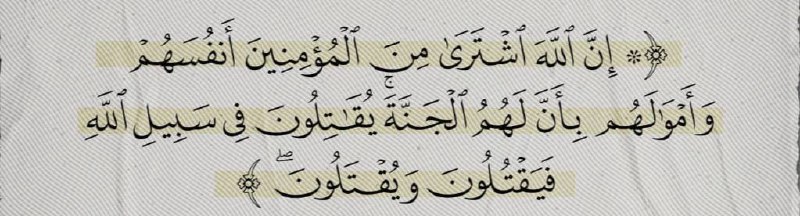 ﴿۞ إِنَّ ٱللَّهَ ٱشۡتَرَىٰ مِنَ ٱلۡمُؤۡمِنِينَ أَنفُسَهُمۡ
وَأَمۡوَٰلَهُم بِأَنَّ لَهُمُ ٱلۡجَنَّةَۚ يُقَٰتِلُونَ فِي سَبِيلِ ٱللَّهِ
فَيَقۡتُلُونَ وَيُقۡتَلُونَۖ ﴾